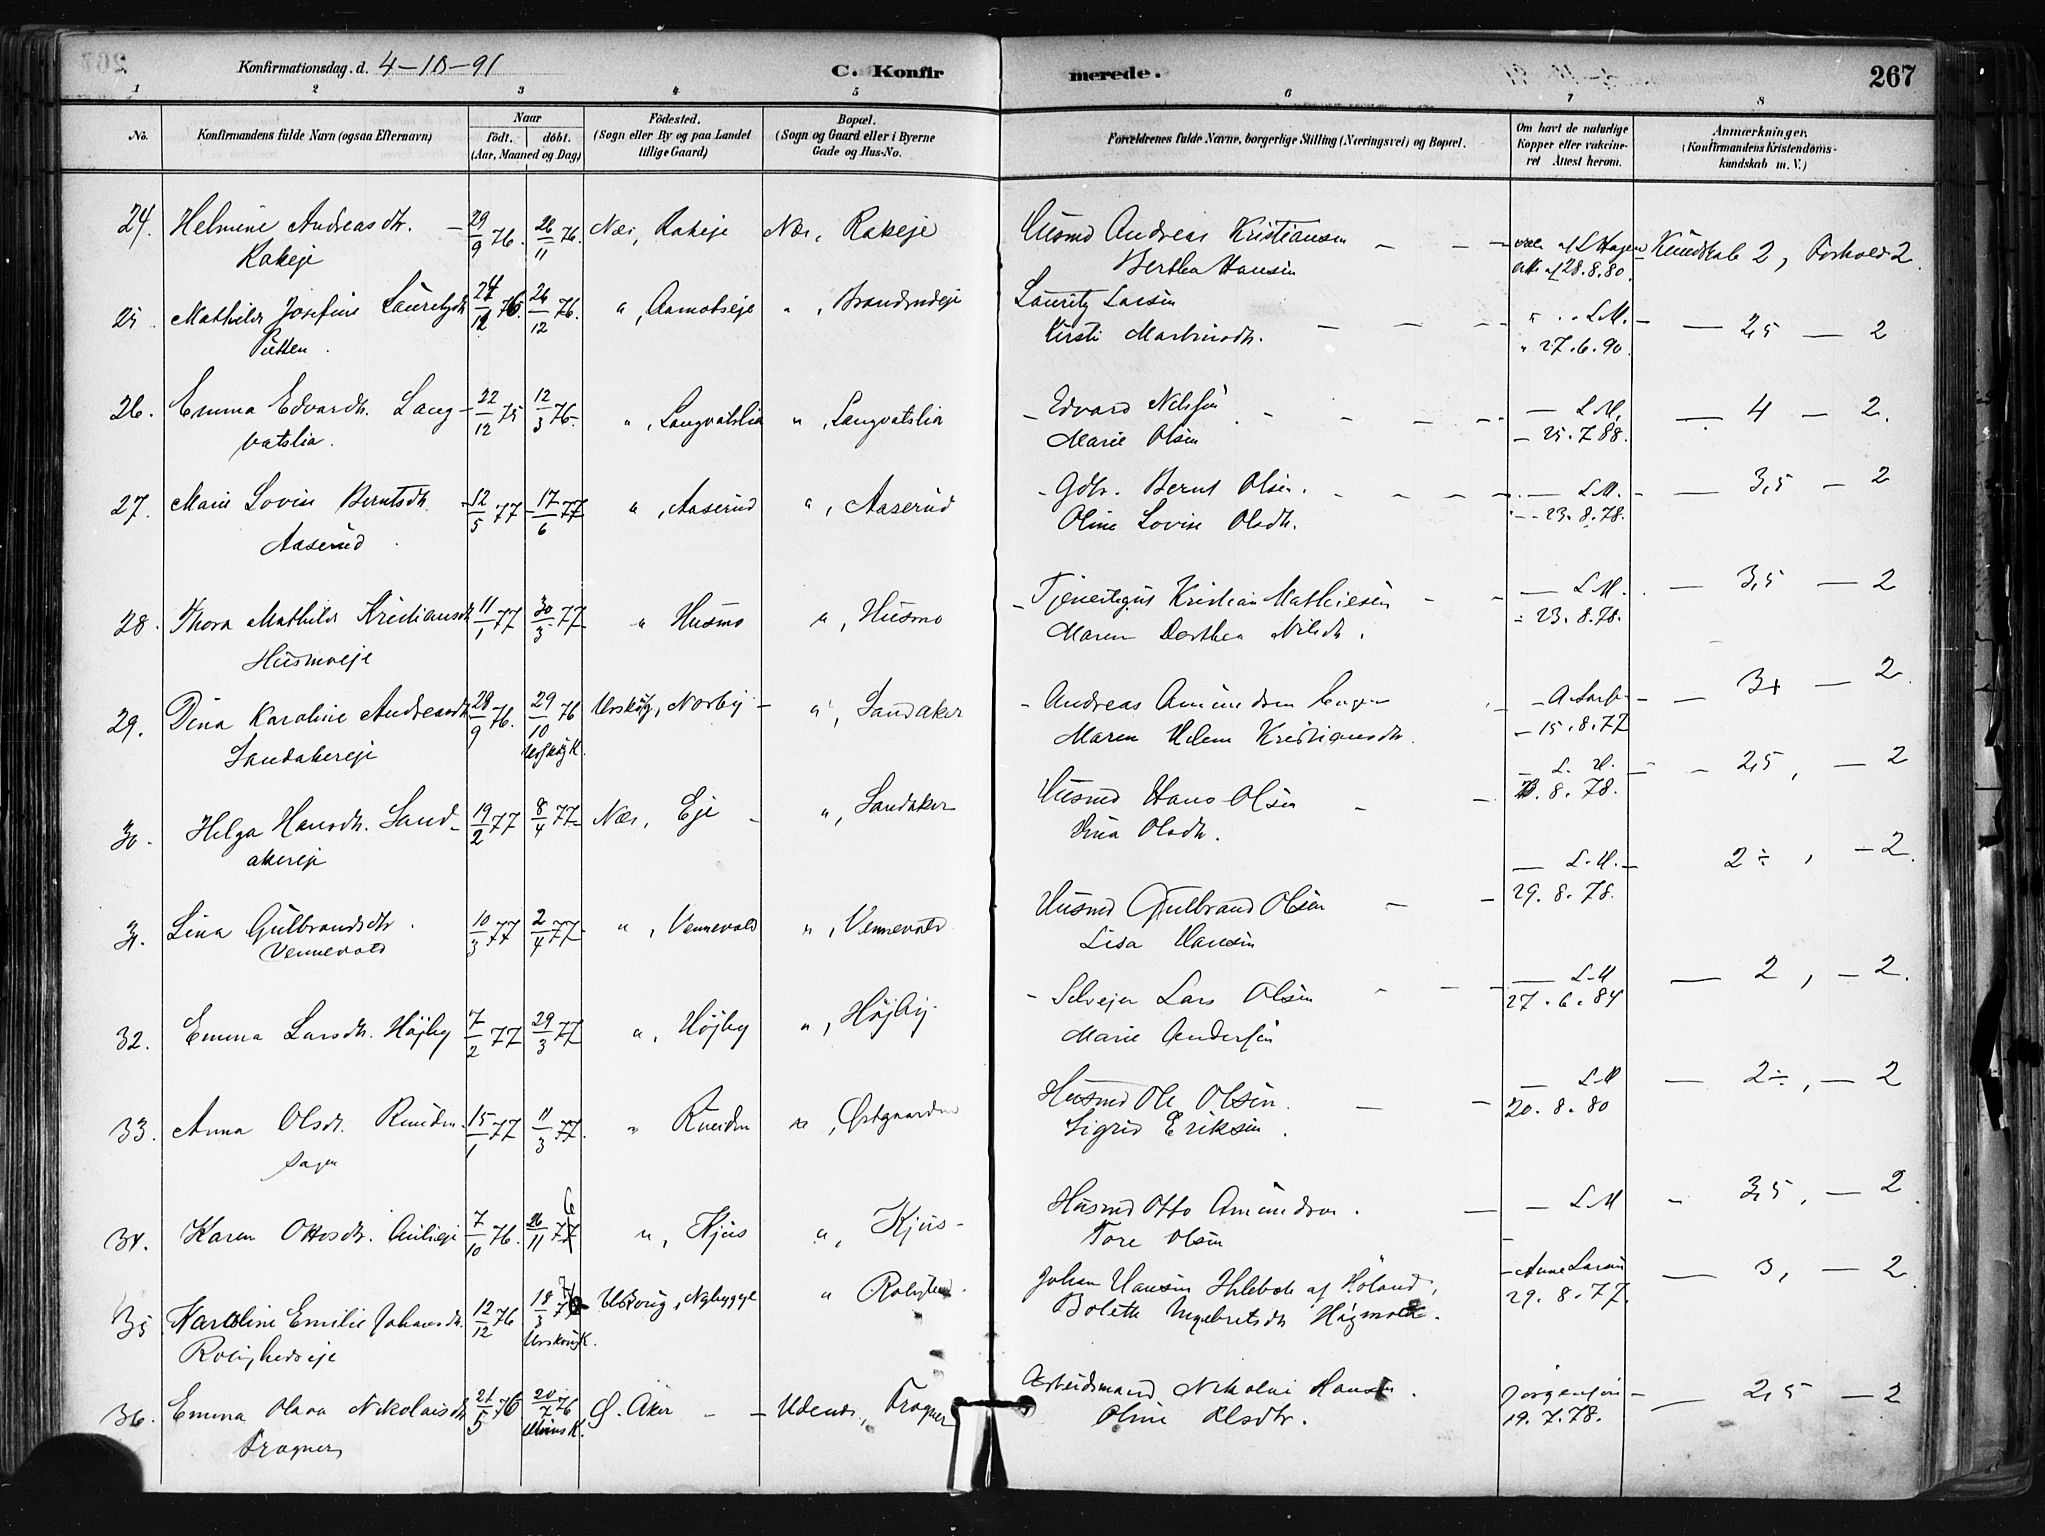 Konfirmationsdag. d. 4-10-91 C. Konfir merede. 267
1 2 3 4 5 6 7 8
No. Konfirmandens fulde Navn (ogsaa Efternavn) Naar födt. döbt. (Aar, Maaned og Dag) Födested. (Sogn eller By og paa Landet tillige Gaard) Bopæl. (Sogn og Gaard eller i Byerne Gade og Hus-No. Forældrenes fulde Navne, borgerlige Stilling (Næringsvei) og Bopæl. Om havt de naturlige Kopper eller vakcineret Attest herom. Anmærkninger. (Konfirmandens Kristendomskundskab m. V.)
24. Helmine Andreasdtr. 29/9 76. 26/11 76. Nær, Rakeje Nær, Rakeje Husmd Andreas Kristiansen — vac. af L Hagen Kundskab 2, Forhold 2.
Rakeje Berthea Hansen att af 28.8.80.
25. Mathilde Josefine Lauritzdtr 24/12 76. 26/12 76. " , Aamotseje " , Lauritz Larsen " L.M. — 2,5 — 2
Putten. Kirsti Martinsdtr. " 27.6.90.
26. Emma Edvardtr. Lang- 22/12 75 12/3 76. " , Langvatslia " , Langvatslia Edvard Nilssen — L.M. — 4 — 2.
vatslia. Marie Olsen — 25.7.88.
27. Marie Lovise Berntsdtr. 12/5 77 17/6 77 " , Aaserud " , Aaserud Gdbr. Bernt Olsen. — L.M. — 3,5 — 2
Aaserud Oline Lovise Olsdtr. — 23.8.78.
28. Thora Mathilde Kristiansdtr 11/1 77 30/3 77 " Husmo " , Husmo Kristian Mathiesen — L.M. — 3,5 — 2
Husmoeje Maren Dorthea Nilsdtr. — 23.8.78.
29. Dina Karoline Andreasdtr 28/9 76. 29/10 76 Urskog, Norby " , Sandaker Andreas Amundsen — 3+ — 2
Sandakereje Urskog K. Maren Helene Kristiansdtr. — 15.8.77
30. Helga Hansdtr. Sand- 19/2 77 8/4 77 Nær, Eje " , Sandaker Husmd Hans Olsen — L. M. — 2,5, — 2
akereje Dina Olsdtr. 8.78.
31. Lina Gulbrandsdtr. 10/3 77 2/4 77 " , Vennevold " , Vennevold Husmd Gulbrand Olsen — L.M. 2÷, — 2.
Vennevold Lisa Hansen 29.8.78.
32. Emma Larsdtr. Højby 7/2 77 29/3 77 " , Højby " , Højby. Selvejer Lars Olsen — L.M — 2, — 2.
Marie Anderssen 27.6.84
33. Anna Olsdt. Runden. 15/1 77 11/3 77. " Runden " , Østgaarden Husmd Ole Olsen. — L.M — 2÷, — 2
Sagen Sigrid Eriksen. 20.8.80
34. Karen Ottosdtr. 7/10 76. 26/11 77 6 " , Kjus " , Kjus Husmd Otto Amundsen. — L.M " 3,5, — 2.
Tore Olsen
35. Karoline Emilie Johansdtr. 12/12 76 18/3 77 Urskoug, Nybygget " Johan Hansen af Høland, — Anne Larsen — 3, — 2
Rolighedseje Urskoug K. Bolette Ingebretsdtr 29.8.77.
36. Emma Olava Nikolaisdtr 21/5 76 20/7 76 Ø. Aker — Udenes, Frogner Arbeidsmand Nikolai Hansen. Jørgensen — 2,5 — 2
Frogner Oline Olsdtr. 19.7.78.